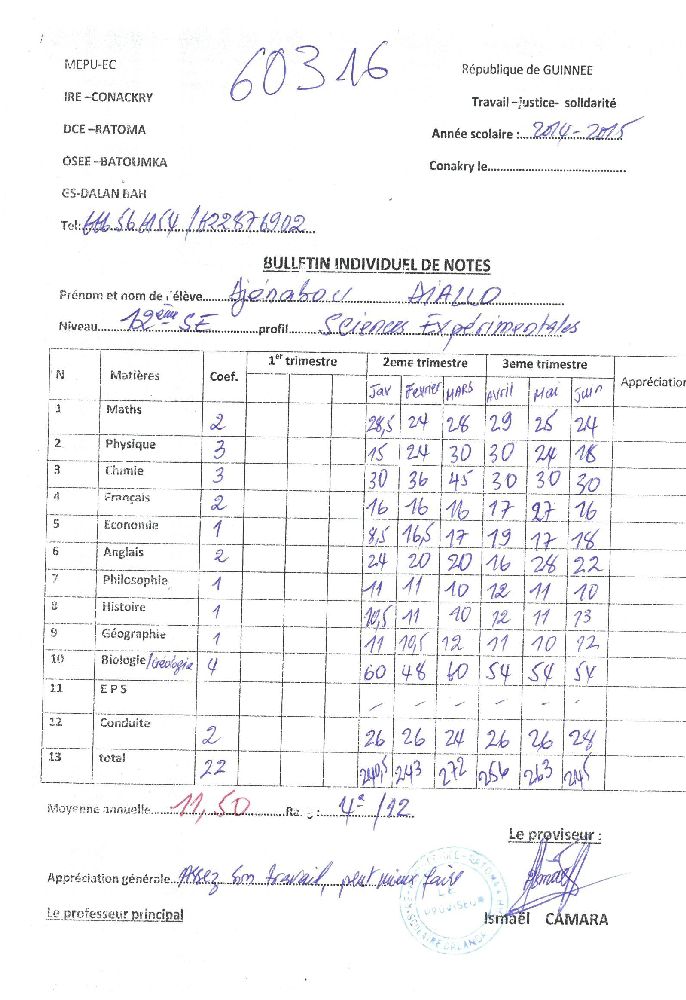 60316
MEPU-EC
République de GUINNEE
IRE –CONACKRY
Travail –justice- solidarité
DCE –RATOMA
Année scolaire : 2014-2015
OSEE –BATOUMKA
Conakry le
GS-DALAN BAH
Tel: 666 56 41 54 / 622876902
BULLETIN INDIVIDUEL DE NOTES
Prénom et nom de l'élève Djénabou DIALLO
Niveau 12ème SE profil Sciences Expérimentales
N Matières Coef. 1er trimestre 2eme trimestre 3eme trimestre Appréciation
Jav Fevrier MARS Avril Mai Juin
1 Maths 2 28,5 24 28 29 25 24
2 Physique 3 15 24 30 30 24 18
3 Chimie 3 30 36 45 30 30 30
4 Français 2 16 16 16 17 27 16
5 Economie 1 8,5 16,5 17 19 17 18
6 Anglais 2 24 20 20 16 28 22
7 Philosophie 1 11 11 10 12 11 10
8 Histoire 1 10,5 11 10 12 11 13
9 Géographie 1 11 10,5 12 11 10 12
10 Biologie/Geologie 4 60 48 60 54 54 54
11 E P S – – – – – –
12 Conduite 2 26 26 24 26 26 28
13 total 22 240,5 243 272 256 263 245
Moyenne annuelle 11,50 Rang : 4e/12
Le proviseur :
Appréciation générale Assez bon travail, peut mieux faire
LE PROVISEUR
Le professeur principal
Ismaël CAMARA